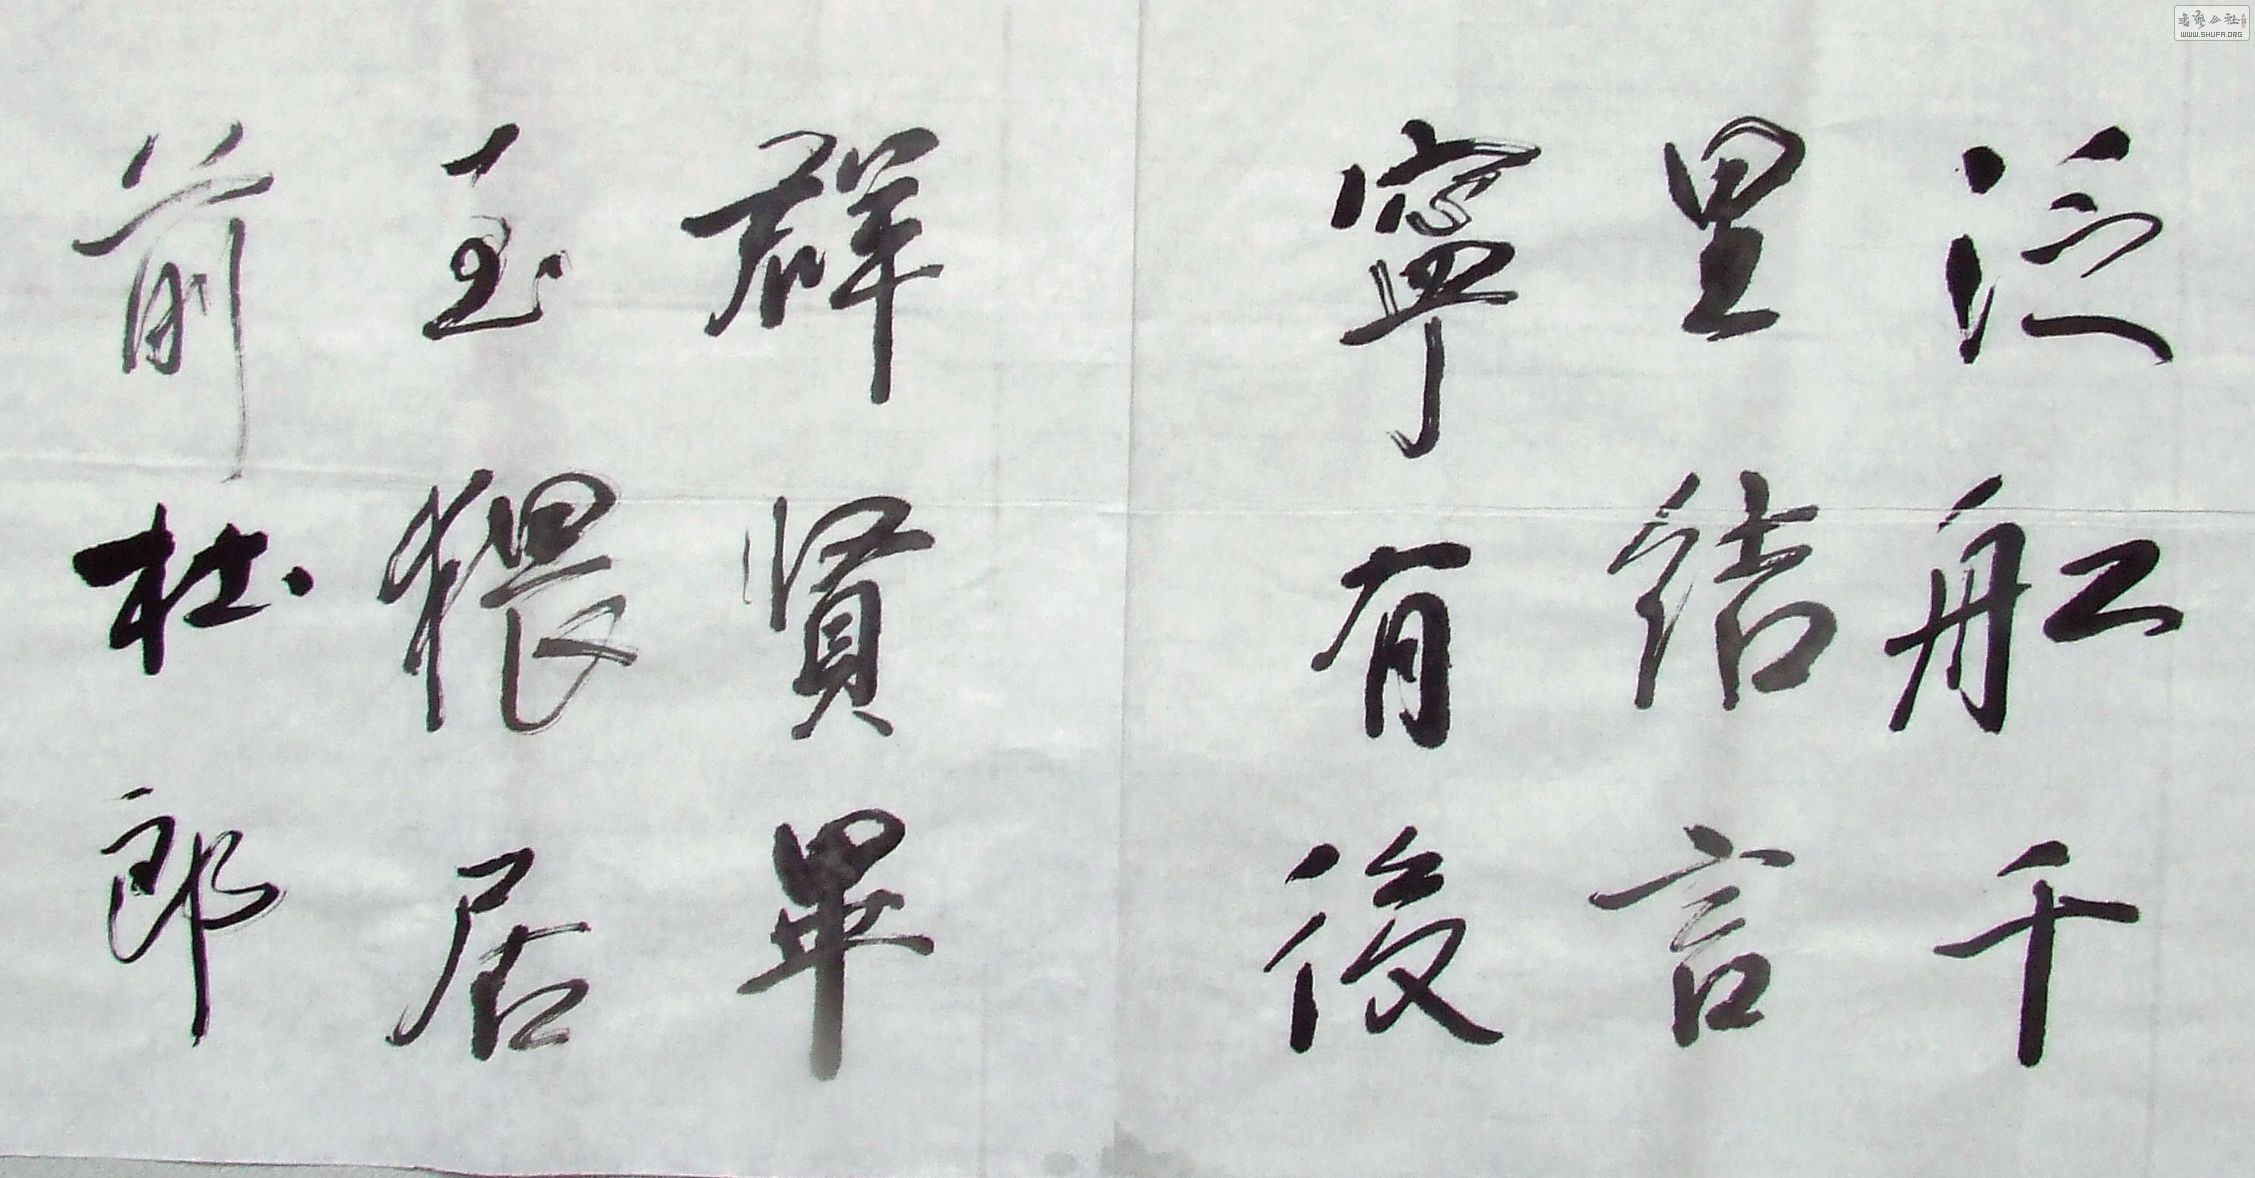 泛舡千
里結言
寧有後
群賢畢
至猥居
前杜郎
书艺公社
WWW.SHUFA.ORG